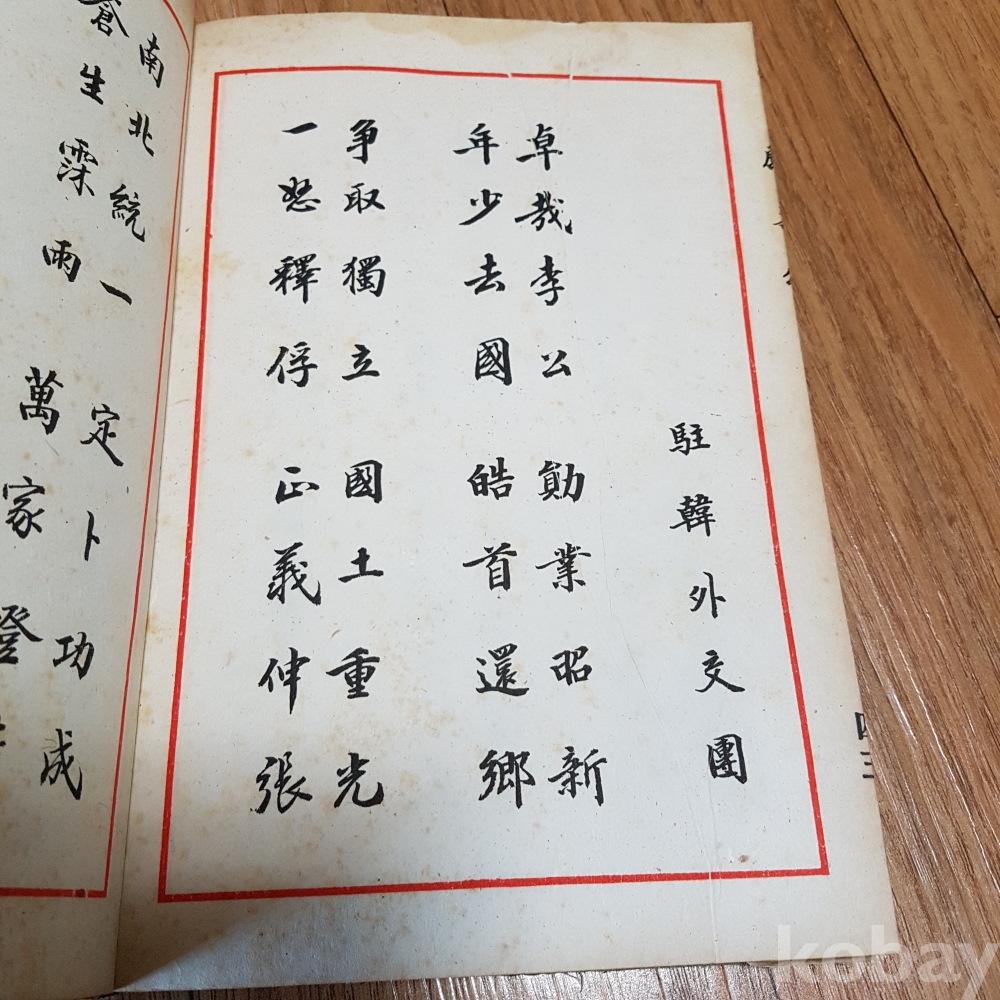 駐韓外交團
卓哉李公 勛業昭新
年少去國 皓首還鄉
争取獨立 國土重光
一怒釋俘 正義伸張
南北統一 定卜功成
蒼生霂雨 萬家登
四三
kobay